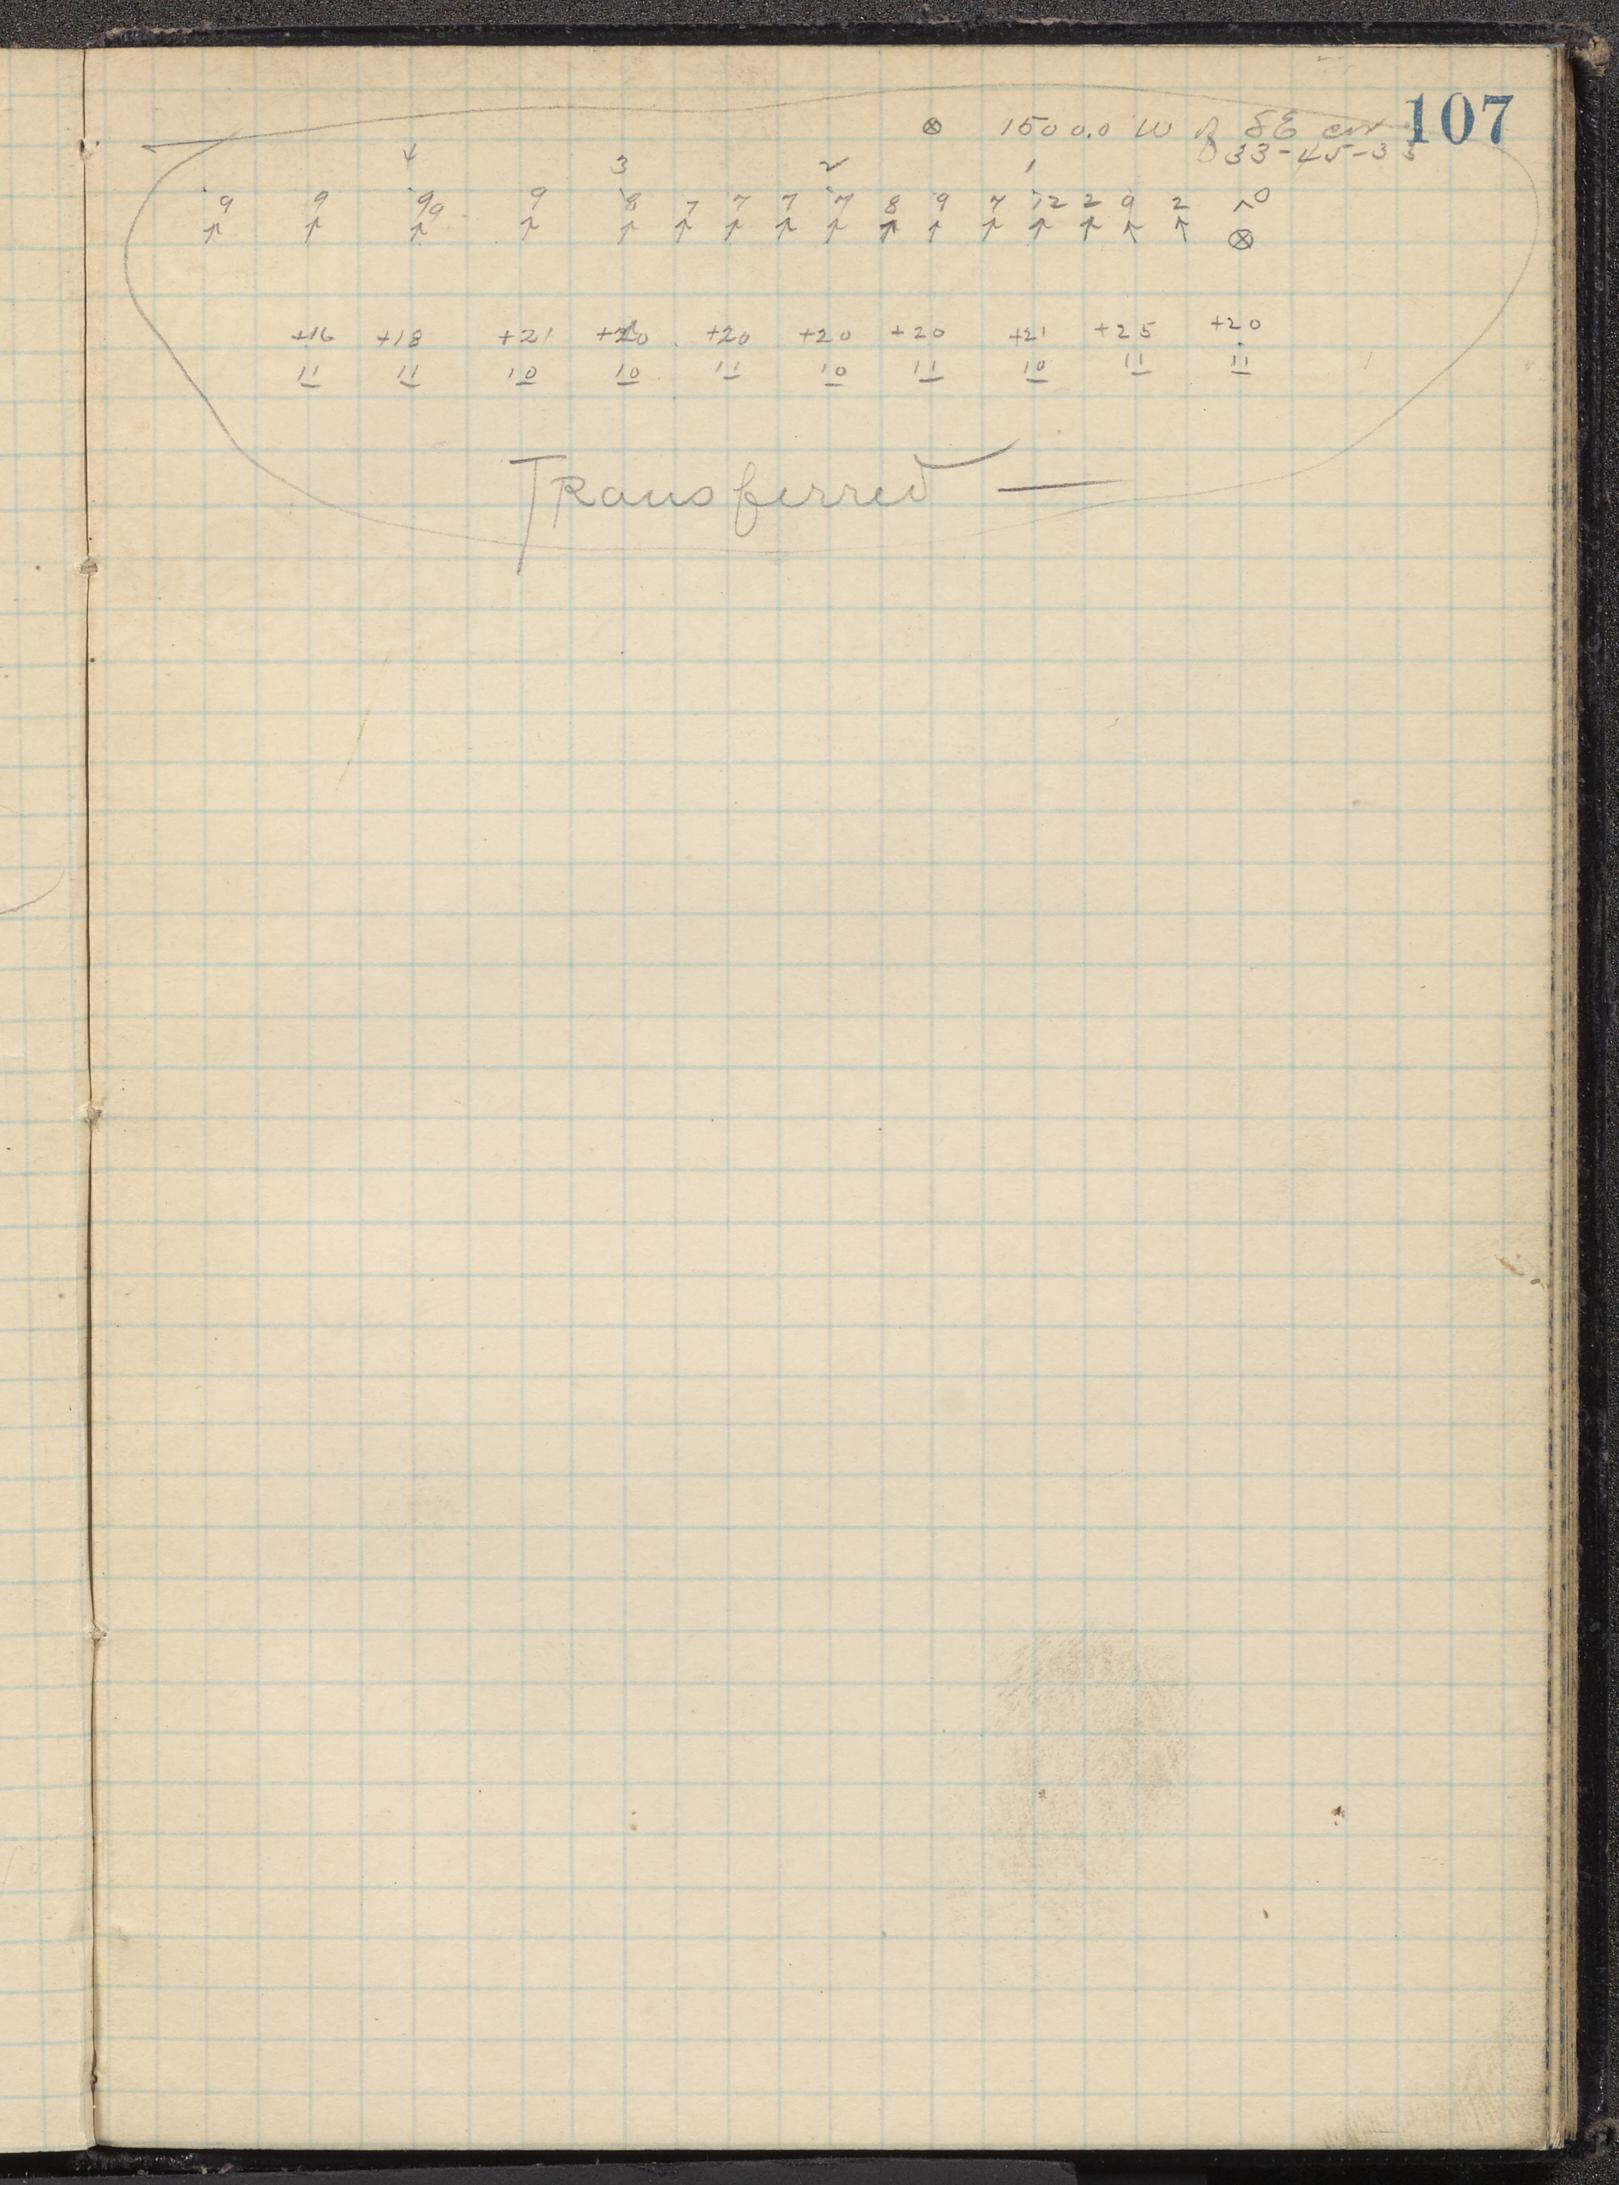 107
⊗ 1500.0 W of SE cor
33-45-33
4 3 2 1
9 9 99 9 8 7 7 7 7 8 9 7 12 2 9 2 0
↑ ↑ ↑ ↑ ↑ ↑ ↑ ↑ ↑ ↑ ↑ ↑ ↑ ↑ ↑ ↑ ⊗
+16 +18 +21 +20 +20 +20 +20 +21 +25 +20
11 11 10 10 11 10 11 10 11 11
Transferred —